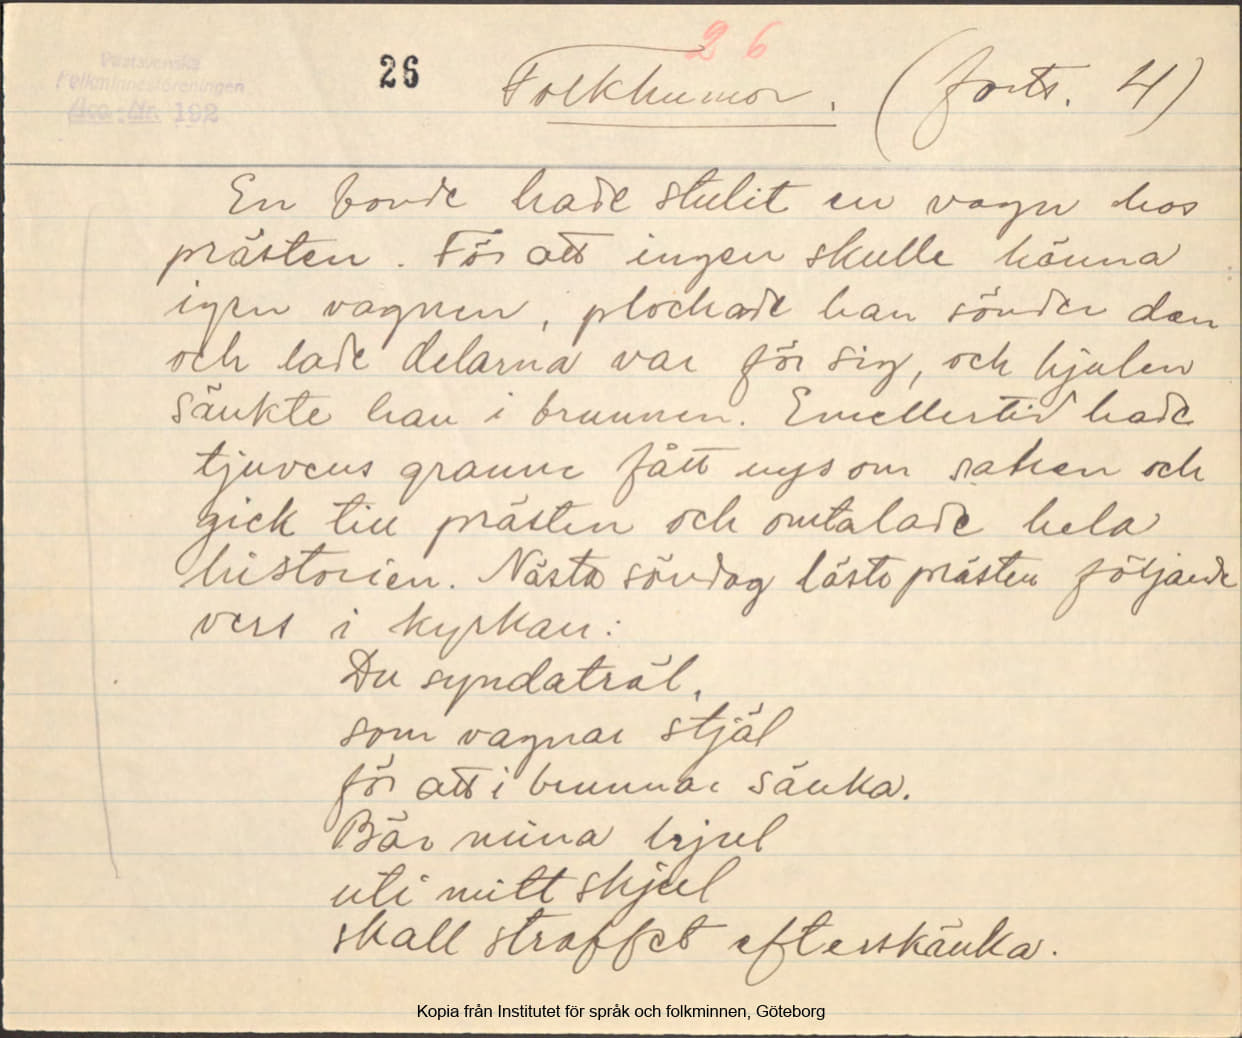 26
Västsvenska
Folkminnesföreningen
Acc.-Nr. 192
26
Folkhumor. (forts. 4)
En bonde hade stulit en vagn hos
prästen. För att ingen skulle känna
igen vagnen, plockade han sönder den
och lade delarna var för sig, och hjulen
sänkte han i brunnen. Emellertid hade
tjuvens granne fått nys om saken och
gick till prästen och omtalade hela
historien. Nästa söndag läste prästen följande
vers i kyrkan:
Du syndaträl,
som vagnar stjäl
för att i brunnar sänka.
Bär mina hjul
uti mitt skjul
skall straffet efterskänka.
Kopia från Institutet för språk och folkminnen, Göteborg